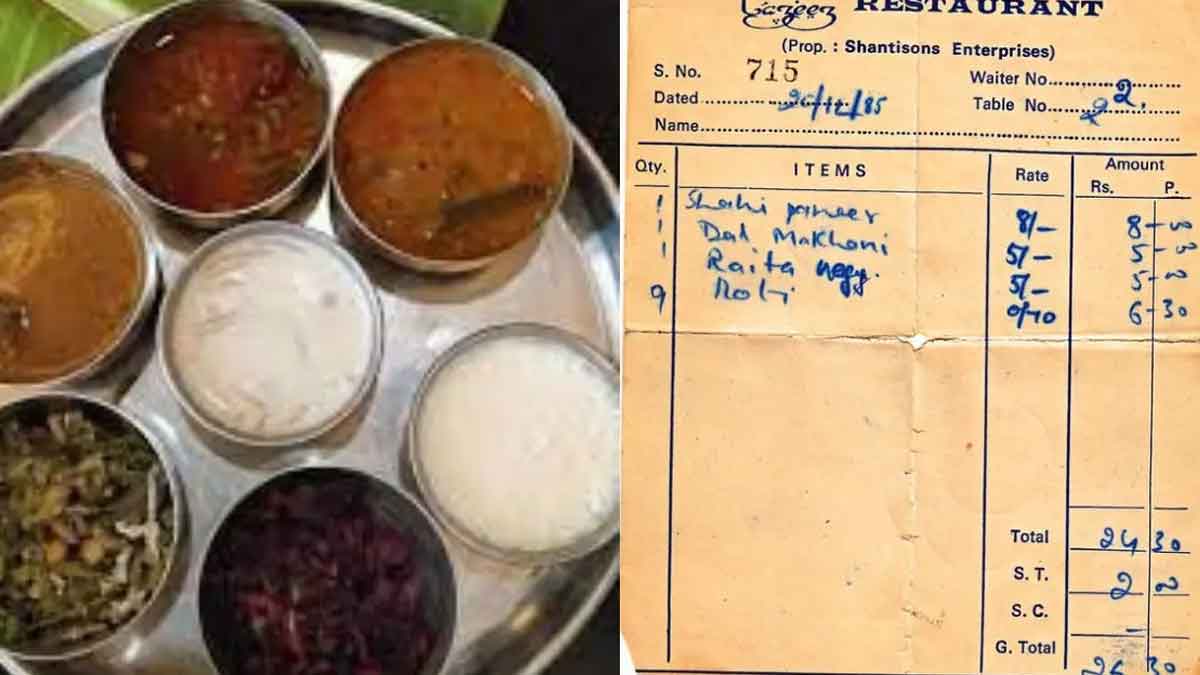 Lazeez RESTAURANT
(Prop. : Shantisons Enterprises)
S. No. 715 Waiter No. 2.
Dated 20/12/85 Table No. 2
Name
Qty. ITEMS Rate Amount
Rs. P.
1 Shahi paneer 8/- 8-00
1 Dal Makhani 5/- 5-00
1 Raita vegg. 5/- 5-00
9 Roti 0/70 6-30
Total 24 30
S. T. 2 00
S. C. -
G. Total 26 30